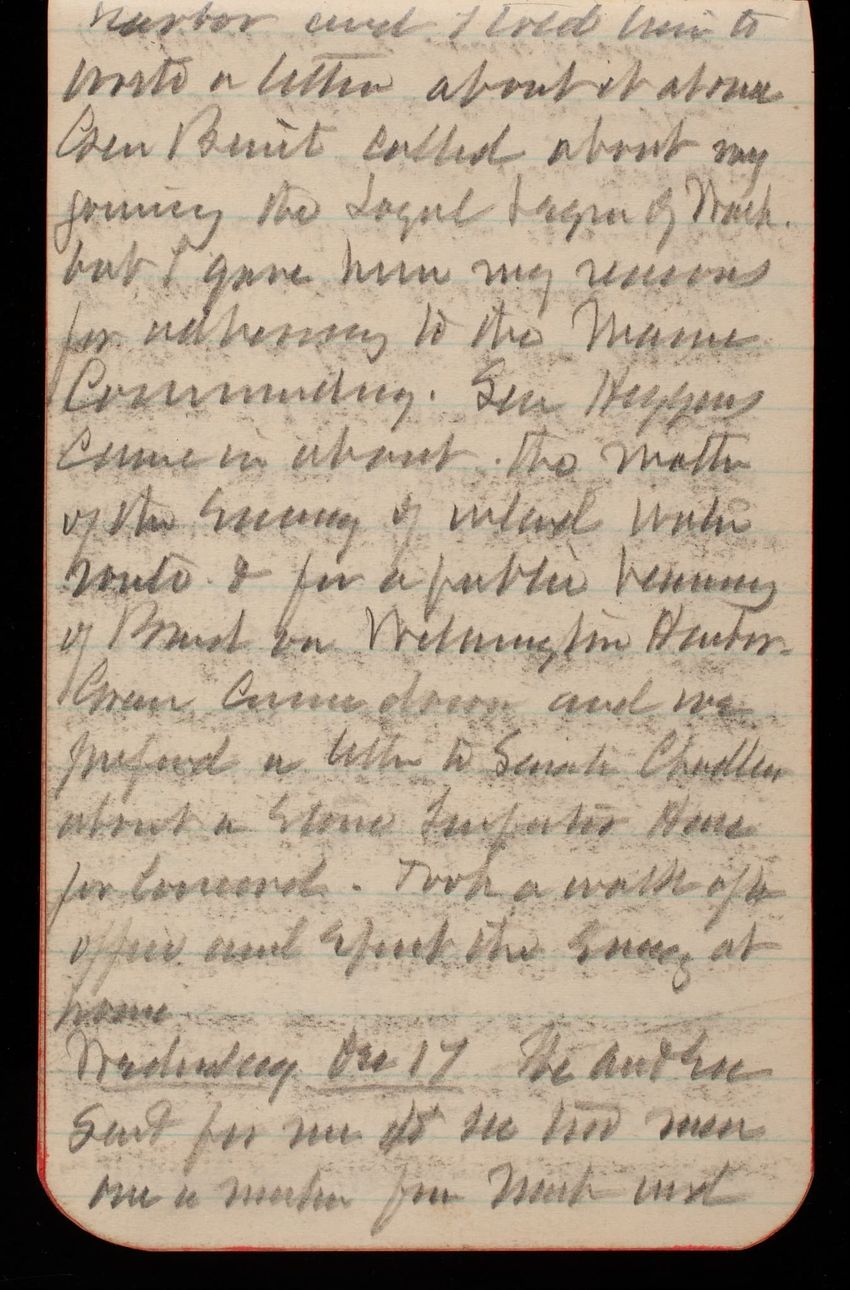 Harbor and I told him to
write a letter about it at once
Gen Benet called about my
joining the Loyal Legion of Wash.
but I gave him my reasons
for adhering to the Maine
Commandery. Sen Higgins
Came in about the matter
of the Survey of inland water
route & for a public hearing
of Board on Wilmington Harbor.
Green Came down and we
prepared a letter to Senator Chandler
about a Stone
for Concord. Took a walk after
office and Spent the Evening at
home
Wednesday Dec 17 The
Sent for me to see two men
one a from and